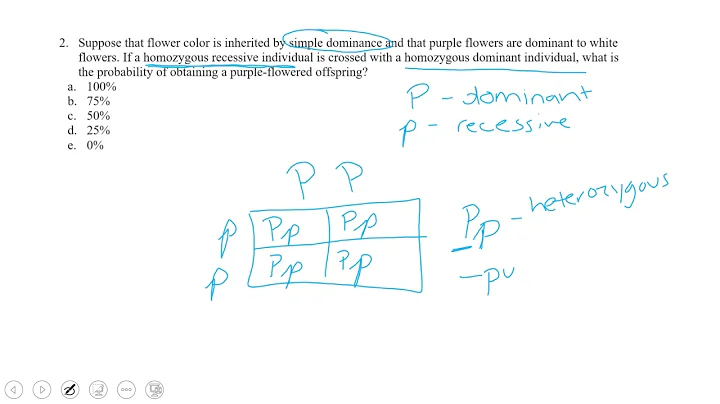 2. Suppose that flower color is inherited by simple dominance and that purple flowers are dominant to white
flowers. If a homozygous recessive individual is crossed with a homozygous dominant individual, what is
the probability of obtaining a purple-flowered offspring?
a. 100%
b. 75%
c. 50%
d. 25%
e. 0%
P - dominant
p - recessive
P P
p Pp Pp
p Pp Pp
Pp - heterozygous
- pu